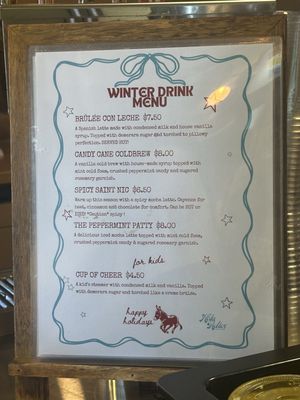 WINTER DRINK
MENU
BRÛLÉE CON LECHE $7.50
A Spanish latte made with condensed milk and house vanilla
syrup. Topped with demerara sugar and torched to pillowy
perfection. SERVED HOT
CANDY CANE COLDBREW $8.00
A vanilla cold brew with house-made syrup topped with
mint cold foam, crushed peppermint candy and sugared
rosemary garnish.
SPICY SAINT NIC $8.50
Warm up this season with a spicy mocha latte. Cayenne for
heat, cinnamon and chocolate for comfort. Can be HOT or
ICED! *Caution* spicy!
THE PEPPERMINT PATTY $8.00
A delicious iced mocha latte topped with mint cold foam,
crushed peppermint candy & sugared rosemary garnish.
for kids
CUP OF CHEER $4.50
A kid's steamer with condensed milk and vanilla. Topped
with demerara sugar and torched like a creme brulee.
happy
holidays